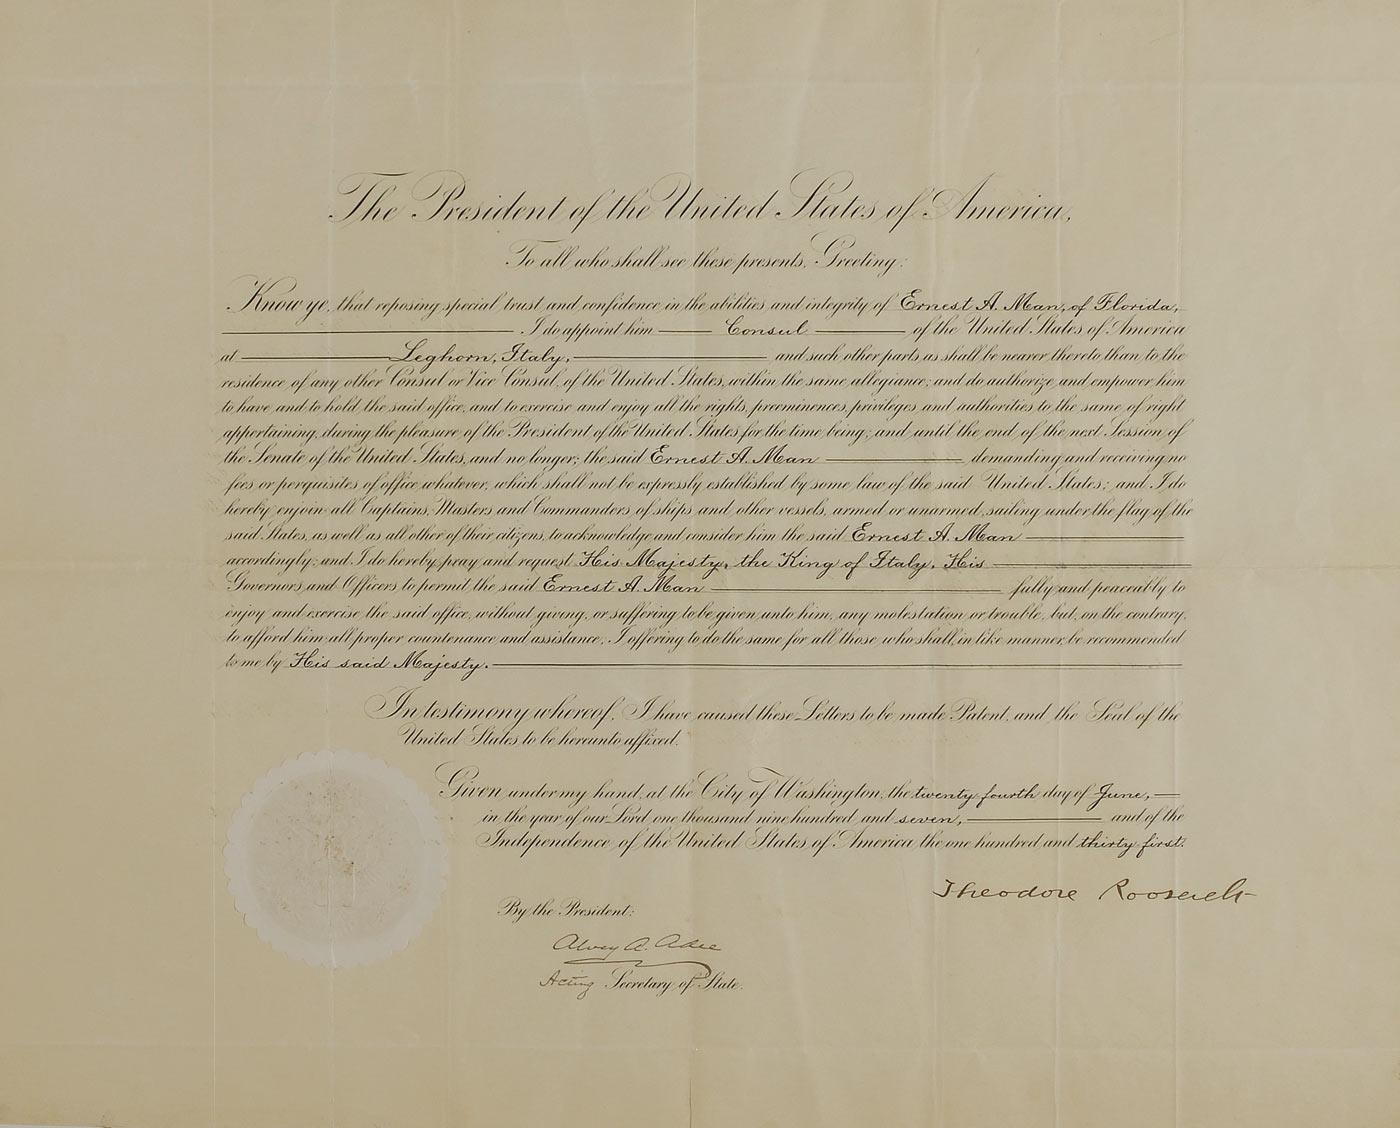 The President of the United States of America,
To all who shall see these presents, Greeting:
Know ye, that reposing special trust and confidence in the abilities and integrity of Ernest A. Man, of Florida,
I do appoint him Consul of the United States of America
at Leghorn, Italy, and such other parts as shall be nearer thereto than to the
residence of any other Consul or Vice Consul, of the United States, within the same allegiance; and do authorize and empower him
to have and to hold the said office, and to exercise and enjoy all the rights, preeminences, privileges and authorities to the same of right
appertaining, during the pleasure of the President of the United States for the time being; and until the end of the next Session of
the Senate of the United States, and no longer; the said Ernest A. Man demanding and receiving no
fees or perquisites of office whatever, which shall not be expressly established by some law of the said United States; and I do
hereby enjoin all Captains, Masters and Commanders of ships and other vessels, armed or unarmed, sailing under the flag of the
said States, as well as all other of their citizens, to acknowledge and consider him the said Ernest A. Man
accordingly; and I do hereby pray and request His Majesty, the King of Italy, His
Governors and Officers to permit the said Ernest A. Man fully and peaceably to
enjoy and exercise the said office, without giving, or suffering to be given unto him, any molestation or trouble, but, on the contrary,
to afford him all proper countenance and assistance; I offering to do the same for all those who shall, in like manner, be recommended
to me by His said Majesty.
In testimony whereof, I have caused these Letters to be made Patent, and the Seal of the
United States to be hereunto affixed.
Given under my hand, at the City of Washington, the twenty fourth day of June,
in the year of our Lord one thousand nine hundred and seven, and of the
Independence of the United States of America the one hundred and thirty first.
Theodore Roosevelt
By the President:
Alvey A. Adee
Acting Secretary of State.